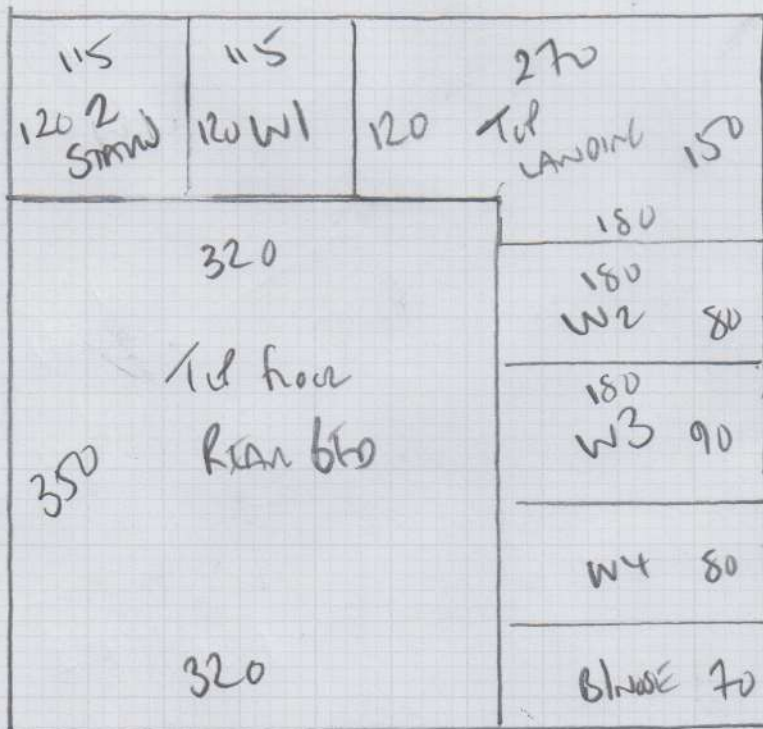 115
120 2
STAIRS
115
120 W1
270
120 TOP
LANDING 150
180
320
TOP floor
REAR BED
350
320
180
W2 80
180
W3 90
W4 80
B/NOSE 70